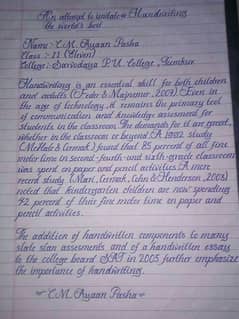 An attempt to imitate Handwriting
the world's best
Name:- C.M. Ayaan Pasha
Class:- 11 (Eleven)
College:- Sarvodaya P.U. College, Tumkur
Handwriting is an essential skill for both children
and adults (Feder & Majnemer, 2007). Even in
the age of technology, it remains the primary tool
of communication and knowledge assesment for
students in the classroom. The demands for it are great,
whether in the classroom or beyond. A 1992 study
(McHale & Cermak) found that 85 percent of all fine
motor time in second-fourth-and sixth-grade classrooms
was spent on paper and pencil activities. A more
recent study (Marr, Cermak, Cohn & Henderson, 2003)
noted that kindergarten children are now spending
42 percent of their fine motor time on paper and
pencil activities.
The addition of handwritten components to many
state stan assesments, and of a handwritten essay
to the college board SAT in 2005 further emphasize
the importance of handwriting.
C.M. Ayaan Pasha